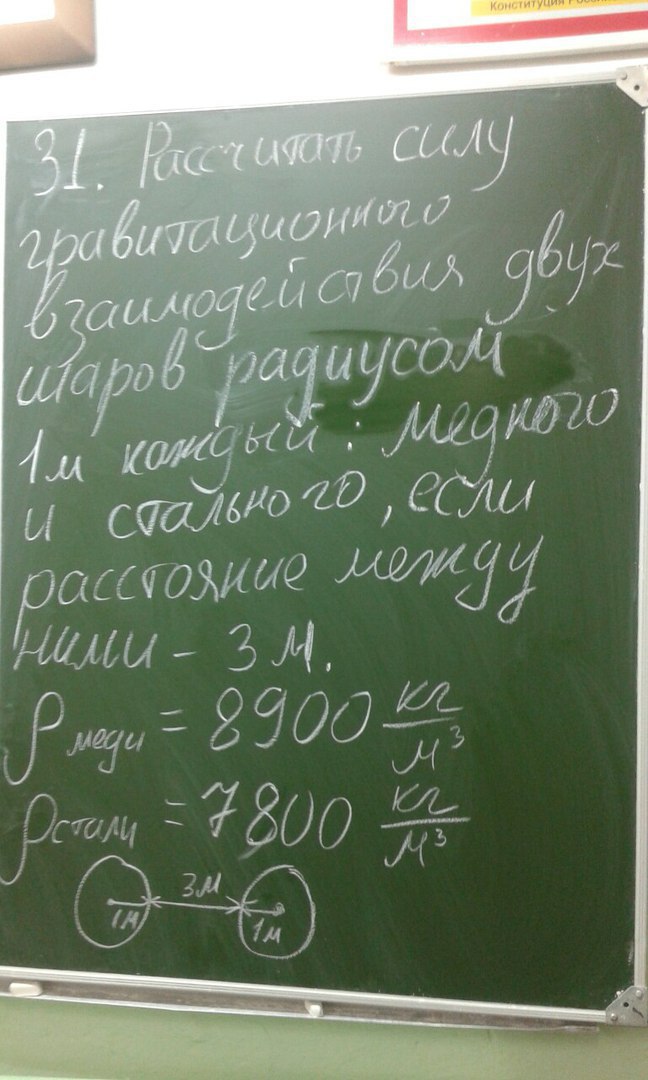 Конституция Росси
31. Рассчитать силу
гравитационного
взаимодействия двух
шаров радиусом
1м каждый: медного
и стального, если
расстояние между
ними - 3 м.
ρ меди = 8900 кг/м³
ρ стали = 7800 кг/м³
3м
1м 1м